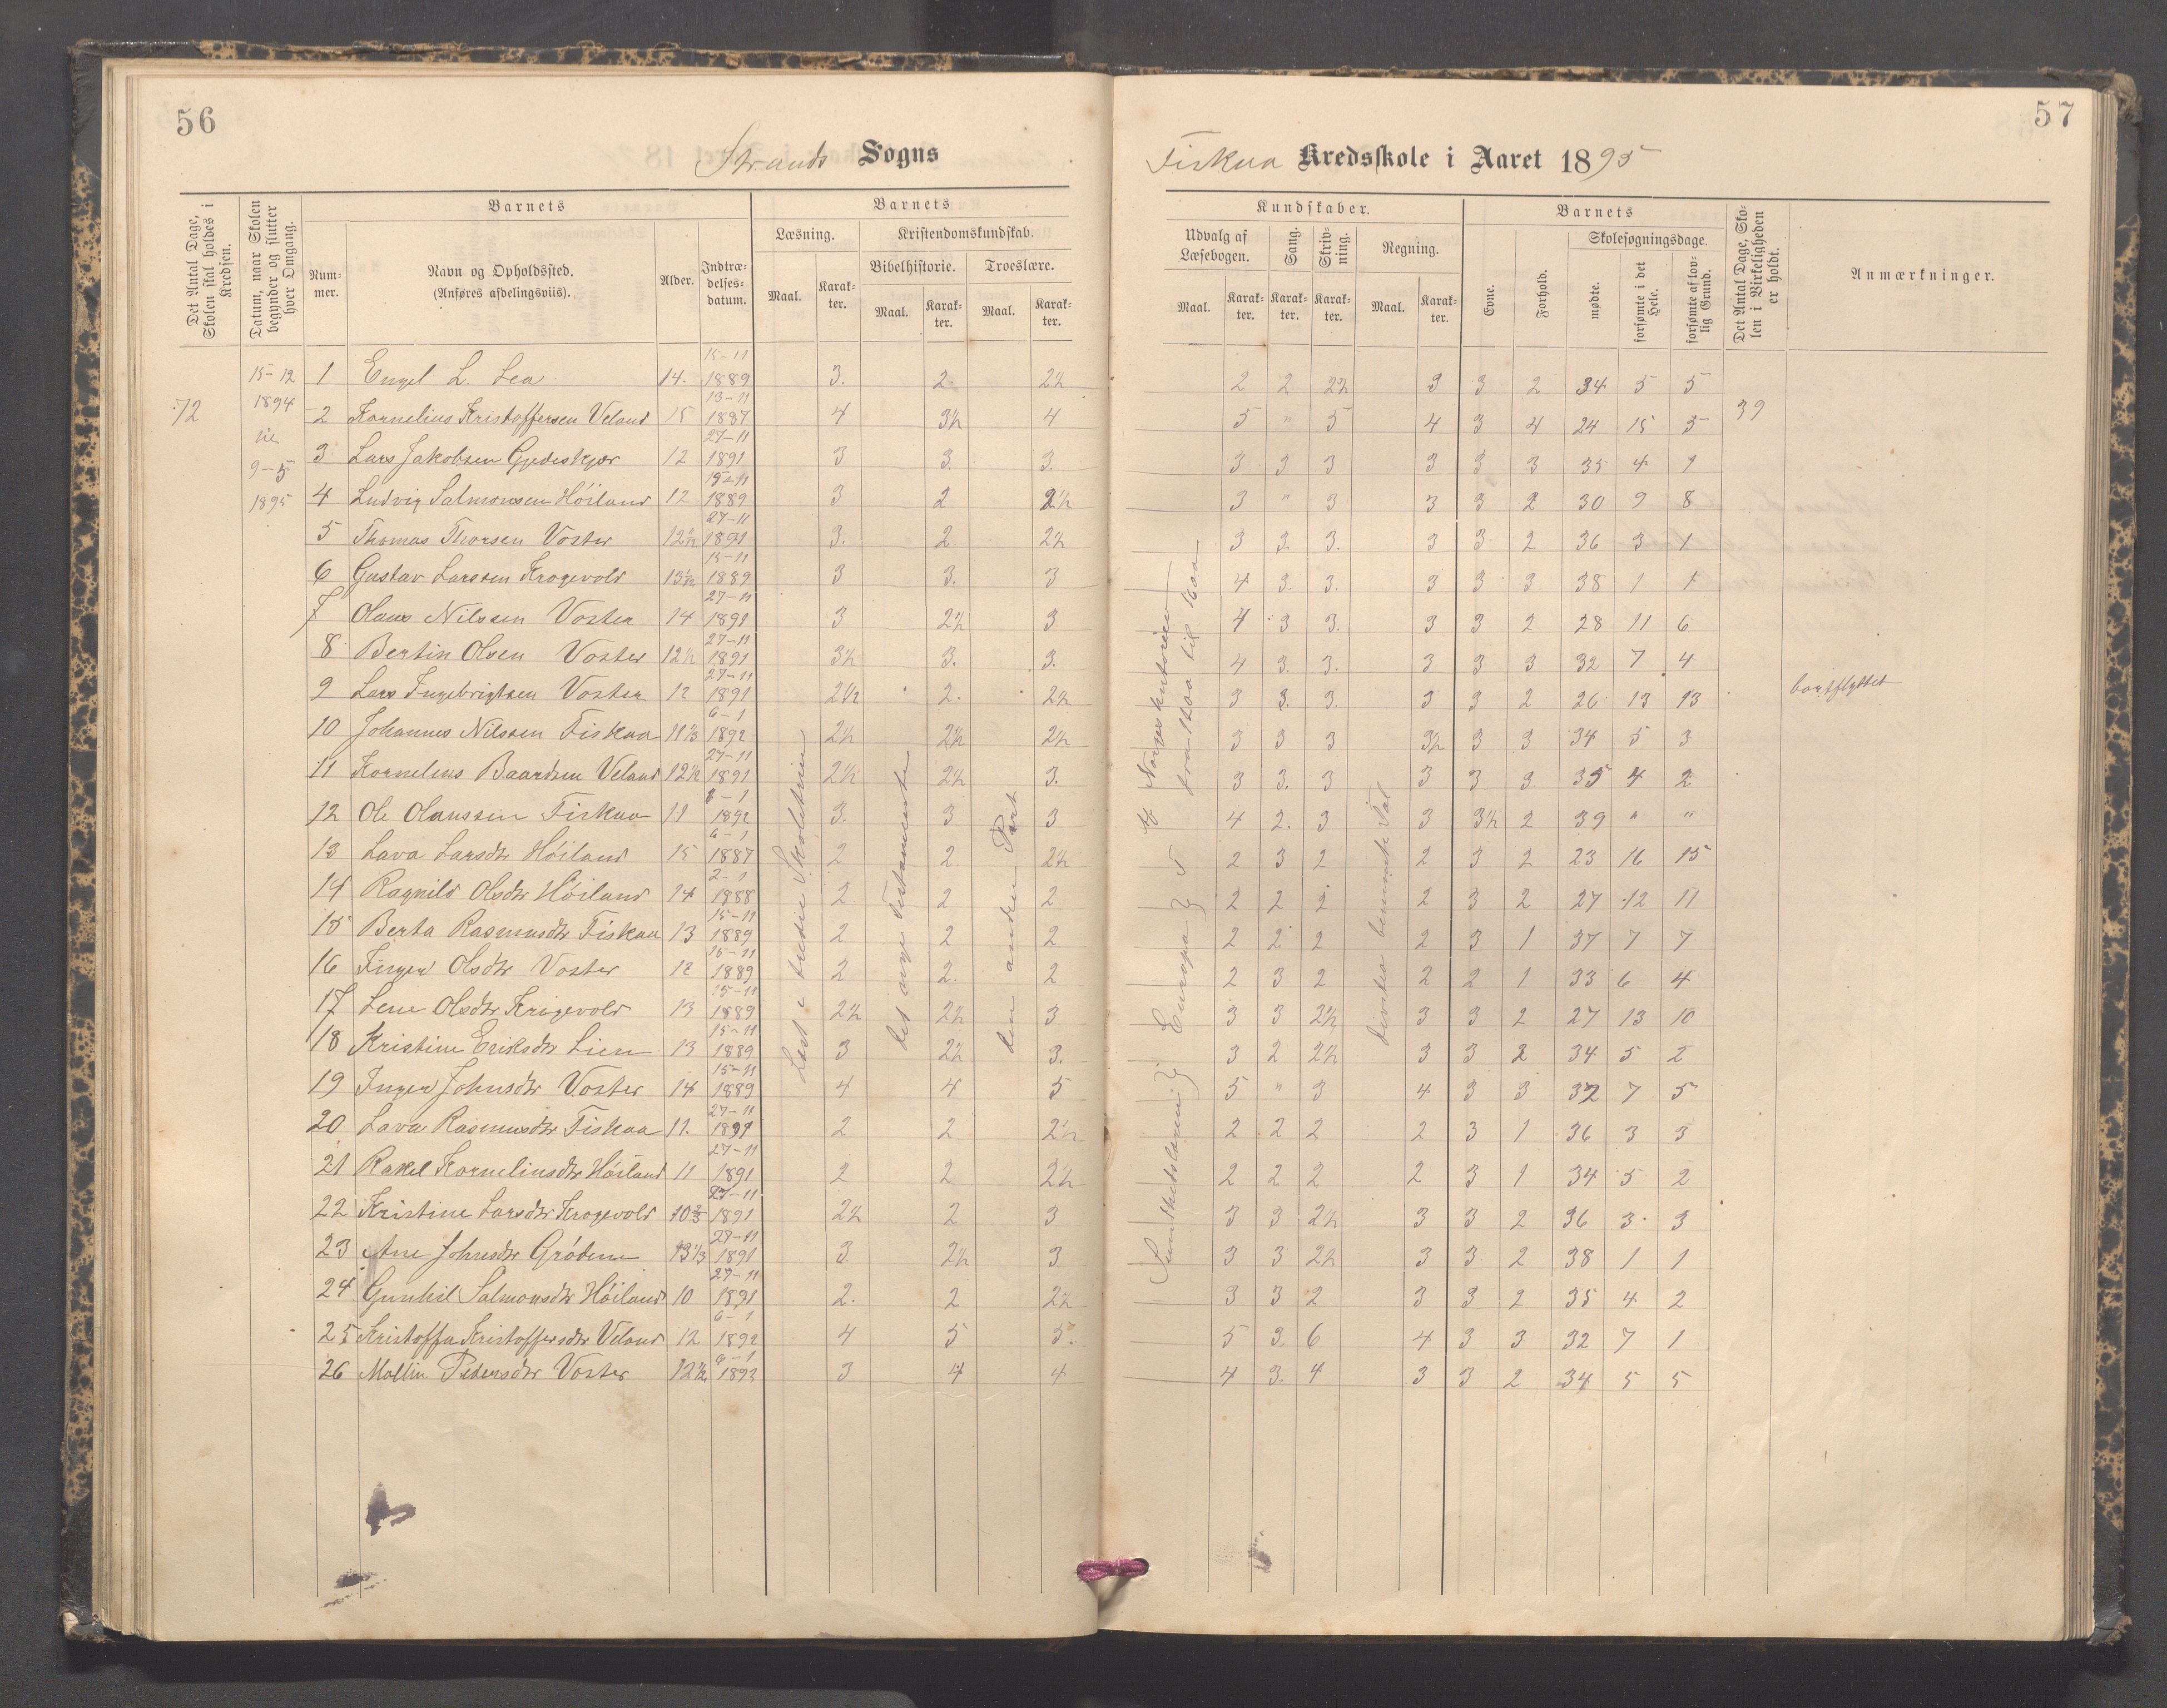 56
57
Strands Sogns
Fiskaa Kredsskole i Aaret 1895
Det Antal Dage, Skolen skal holdes i Kredsen.
Datum, naar Skolen begynder og slutter hver Omgang.
Barnets
Num-mer.
Navn og Opholdssted.
(Anføres afdelingsviis).
Alder.
Indtræ-delses-datum.
Barnets
Læsning.
Maal.
Karak-ter.
Kristendomskundskab.
Bibelhistorie.
Maal.
Karak-ter.
Troeslære.
Maal.
Karak-ter.
Kundskaber.
Udvalg af Læsebogen.
Maal.
Karak-ter.
Sang.
Karak-ter.
Skriv-ning.
Karak-ter.
Regning.
Maal.
Karak-ter.
Barnets
Evne.
Forhold.
Skolesøgningsdage.
mødte.
forsømte i det Hele.
forsømte af lov-lig Grund.
Det Antal Dage, Sko-len i Virkeligheden er holdt.
Anmærkninger.
72
15-12
1894
til
9-5
1895
39
1 Engel L. Lea 14. 15-11 1889 3. 2. 2½ 2 2 2½ 3 3 2 34 5 5
2 Kornelius Kristoffersen Veland 15 13-11 1887 4 3½ 4 5 " 5 4 3 4 24 15 5
3 Lars Jakobsen Gjedeskjær 12 27-11 1891 3 3. 3. 3 3 3 3 3 3 35 4 1
4 Ludvig Salmonsen Höiland 12 15-11 1889 3 2 2½ 3 " 3 3 3 2 30 9 8
5 Thomas Thorsen Voster 12½ 27-11 1891 3. 2. 2½ 3 3. 3. 3 3 2 36 3 1
6 Gustav Larssen Krogevold 13½ 15-11 1889 3 3. 3 4 3. 3. 3 3 3 38 1 1
7 Olaus Nilssen Voster 14 27-11 1891 3 2½ 3 4 3 3. 3 3 2 28 11 6
8 Bertin Olsen Voster 12½ 27-11 1891 3½ 3. 3. 4 3. 3. 3 3 3 32 7 4
9 Lars Ingebrigtsen Voster 12 27-11 1891 2½ 2. 2½ 3 3. 3. 3 3 2 26 13 13 bortflyttet
10 Johannes Nilssen Fiskaa 11⅓ 6-1 1892 2½ 2½ 2½ 3 3 3 3½ 3 3 34 5 3
11 Kornelius Baardsen Veland 12½ 27-11 1891 2½ 2½ 3. 3 3. 3 3 3 3 35 4 2
12 Ole Olaussen Fiskaa 11 6-1 1892 3. 3 3 4 2. 3 3 3½ 2 39 " "
13 Lava Larsdtr Höiland 15 6-1 1887 2 2 2½ 2 3 2 2 3 2 23 16 15
14 Ragnild Olsdtr Höiland 14 2-1 1888 2 2 2 2 2 2 2 3 2 27 12 11
15 Berta Rasmusdtr Fiskaa 13 15-11 1889 2 2 2 2 2 2 2 3 1 37 7 7
16 Inger Olsdtr Voster 12 15-11 1889 2 2. 2 2 3 2 2 2 1 33 6 4
17 Lene Olsdtr Krogevold 13 15-11 1889 2½ 2½ 3 3 3 2½ 3 3 2 27 13 10
18 Kristine Eriksdtr Lien 13 15-11 1889 3 2½ 3. 3 2 2½ 3 3 2 34 5 2
19 Inger Johnsdtr Voster 14 15-11 1889 4 4 5 5 " 3 4 3 3 32 7 5
20 Lava Rasmusdtr Fiskaa 11. 27-11 1891 2 2 2½ 2 2 2 2 3 1 36 3 3
21 Rakel Korneliusdtr Höiland 11 27-11 1891 2 2 2½ 2 2 2 2 3 1 34 5 2
22 Kristine Larsdtr Krogevold 10⅔ 27-11 1891 2½ 2 3 3 3 2½ 3 3 2 36 3 3
23 Ane Johnsdtr Grödem 13⅓ 27-11 1891 3 2½ 3 3 3 2½ 3 3 2 38 1 1
24 Gunhil Salmonsdtr Höiland 10 27-11 1891 2. 2 2½ 3 3 2 3 3 2 35 4 2
25 Kristoffa Kristoffersdtr Veland 12 6-1 1892 4 5 5. 5 3 6 4 3 3 32 7 1
26 Mallin Pedersdtr Voster 12½ 6-1 1893 3 4 4 4 3. 4 3 3 2 34 5 5
Læst i tredie Skoletrin
det nye Testamente
den anden Part
af Norgeshistorien fra 1200 til 1600
Europa
Sundhedslæren
benævnte Tal